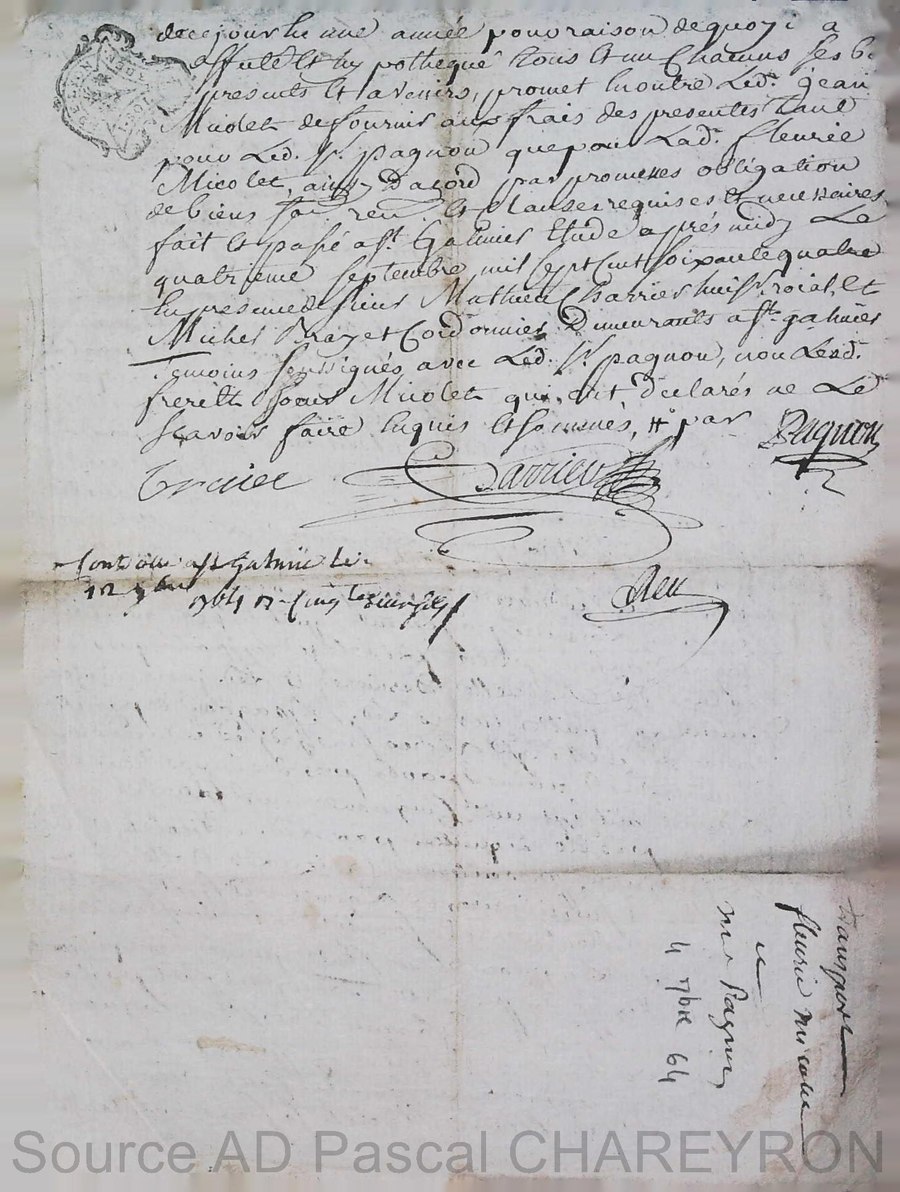 de ce jour en une année pour raison de quoy i a
affuté et hypothequé tous et un chacuns ses b
presents et avenirs, promet en outre Led. jean
Micolet de fournir aux frais des presentes tant
pour Led. Sr. pagnon que pour Lad. fleurie
Micolet, ainsy D'acord par promesses obligation
de biens ren. et clauses requises et necessaires
fait et passé a St. Galmier Etude aprés midy Le
quatrieme septembre mil sept cent soixante quatre
En presence de sieur Mathieu Charrier huiss. roial, et
Michel Brazet Cordonnier Demeurants a St. galmier
Temoins soussignés avec Led. Sr. pagnon, non Lesd.
frere et soeur Micolet qui ont declarés ne Le
scavoir faire enquis et sommés, par Pagnon
Charrier
Controllé a St Galmier le
12 7bre 1764
transport
fleurie micolet
a
me Pagnon
4 7bre 64
Source AD Pascal CHAREYRON